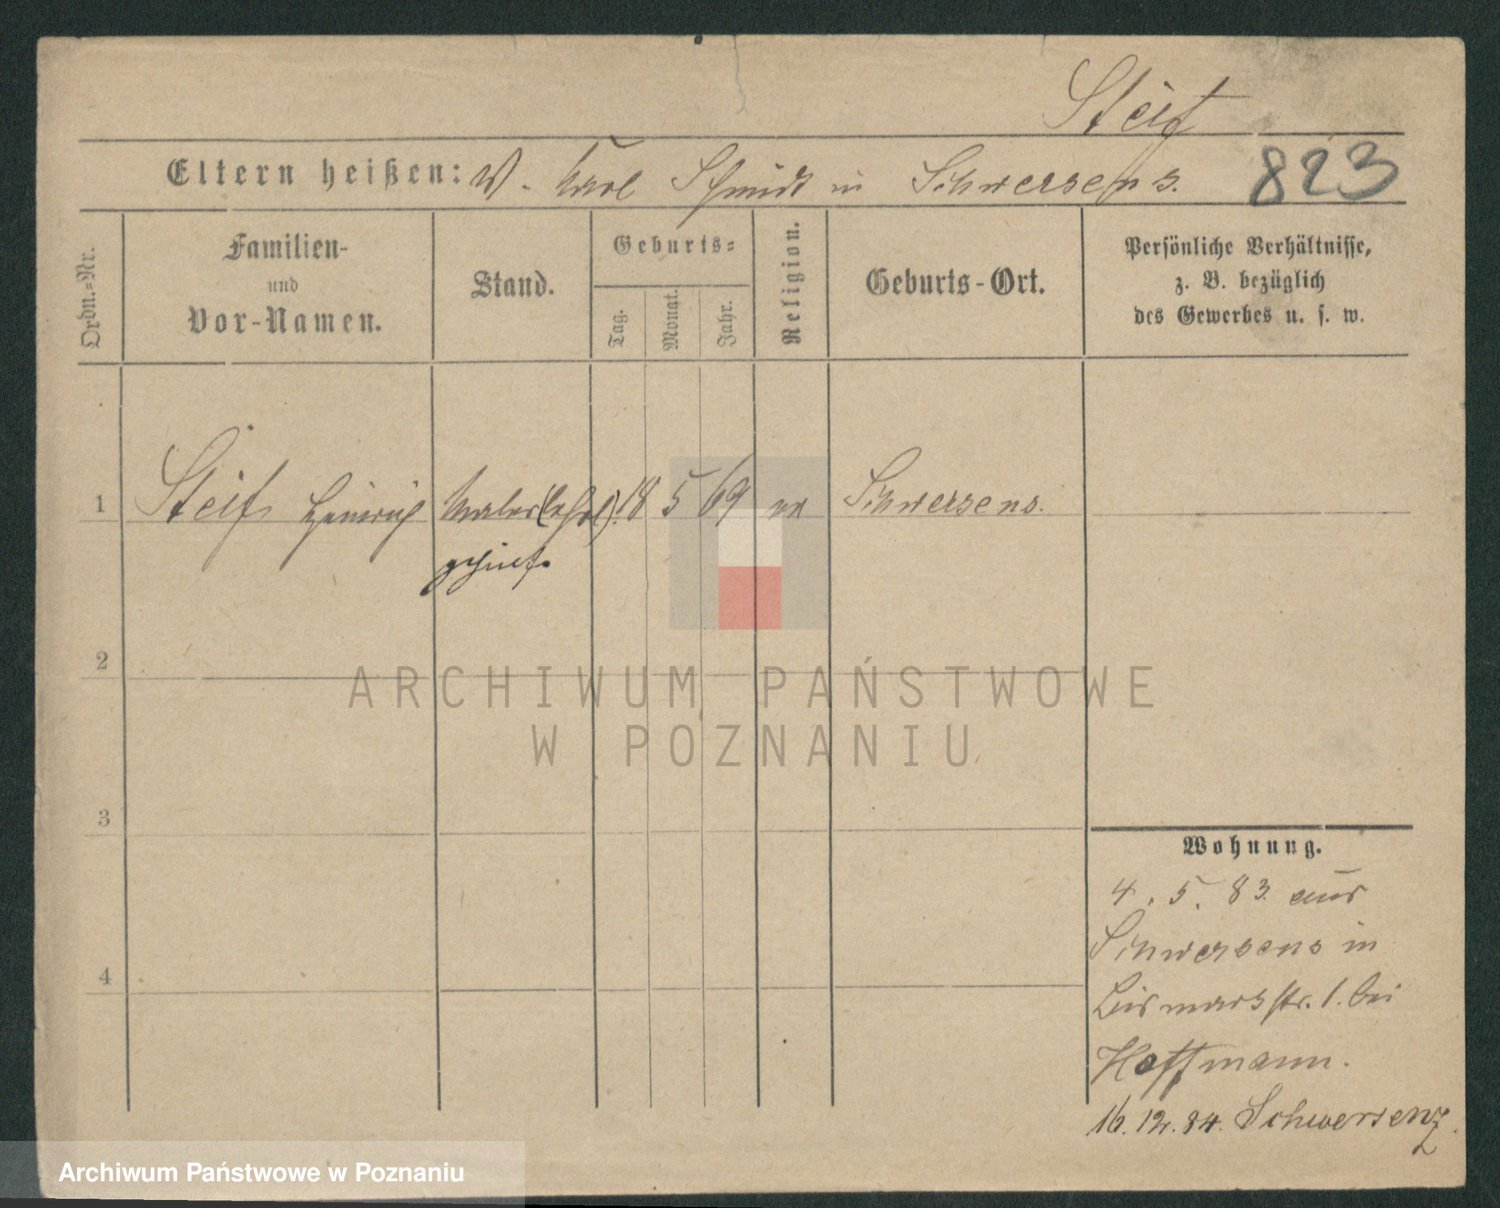 Steif
Eltern heißen: W. Karl Schmidt in Schwersens. 823
Ordn.-Nr.
Familien-
und
Vor-Namen.
Stand.
Geburts-
Tag.
Monat.
Jahr.
Religion.
Geburts-Ort.
Persönliche Verhältnisse,
z. B. bezüglich
des Gewerbes u. s. w.
1 Steif Heinrich Maler(lehrl). 18 5 69 Schwersens.
2
3
4
Wohnung.
4. 5. 83. aus
Schwersens in
Bismarkstr. 1. bei
Hoffmann.
16. 12. 84. Schwersenz.
ARCHIWUM PAŃSTWOWE
W POZNANIU
Archiwum Państwowe w Poznaniu